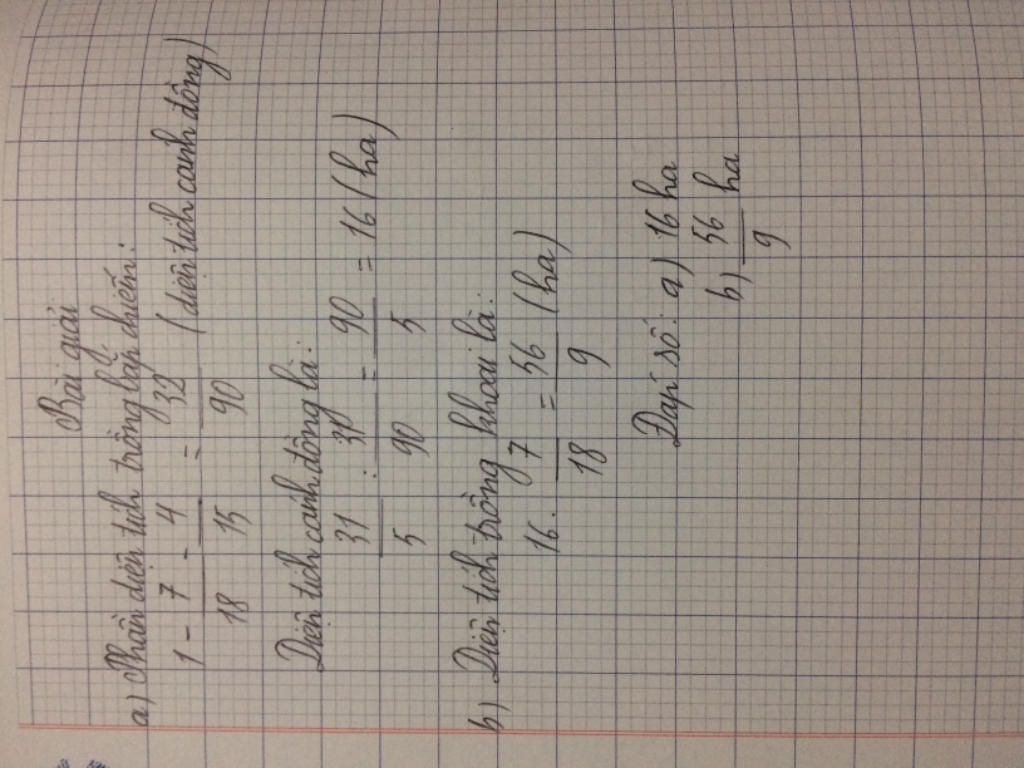 Bài giải
a) Phần diện tích trồng lấp chiếm:
1 - 7/18 - 4/15 = 32/90 (diện tích canh đồng)
Diện tích canh đồng là:
31/5 : 31/90 = 90/5 = 16 (ha)
b) Diện tích trồng khoai là:
16 . 7/18 = 56/9 (ha)
Đáp số: a) 16 ha
b) 56/9 ha